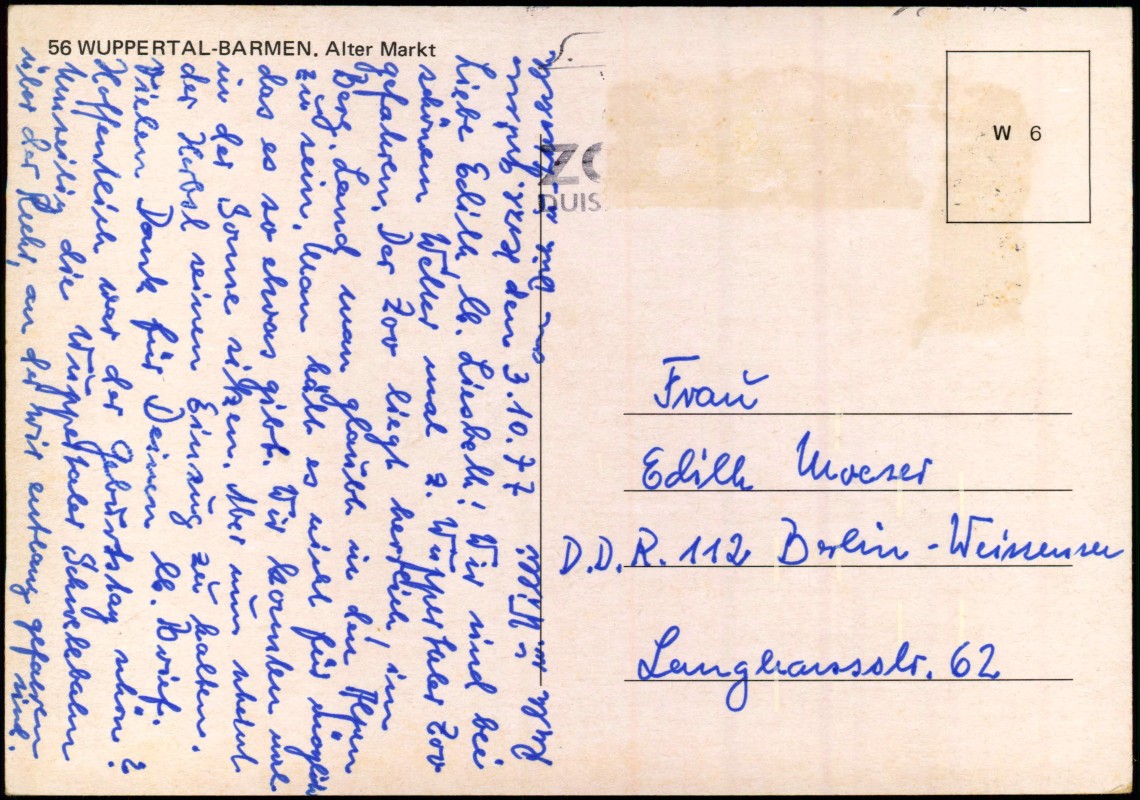 56 WUPPERTAL-BARMEN. Alter Markt
W 6
ZO
DUIS
den 3.10.77
Liebe Edith lb. Liesbeth! Wir sind bei
schönem Wetter mal z. Wuppertaler Zoo
gefahren. Der Zoo liegt herrlich, im
Berg. Land man glaubt in den Alpen
zu sein. Man hält es nicht für möglich
das es so etwas gibt. Wir konnten mal
in der Sonne sitzen. Aber nun scheint
der Herbst seinen Einzug zu halten.
Vielen Dank für Deinen lb. Brief.
Hoffentlich war der Geburtstag schön?
Umseitig die Wuppertaler Schwebebahn
über der Ruhr, an der wir entlang gefahren
sind.
Frau
Edith Moeser
D.D.R. 112 Berlin-Weissensee
Langhansstr. 62